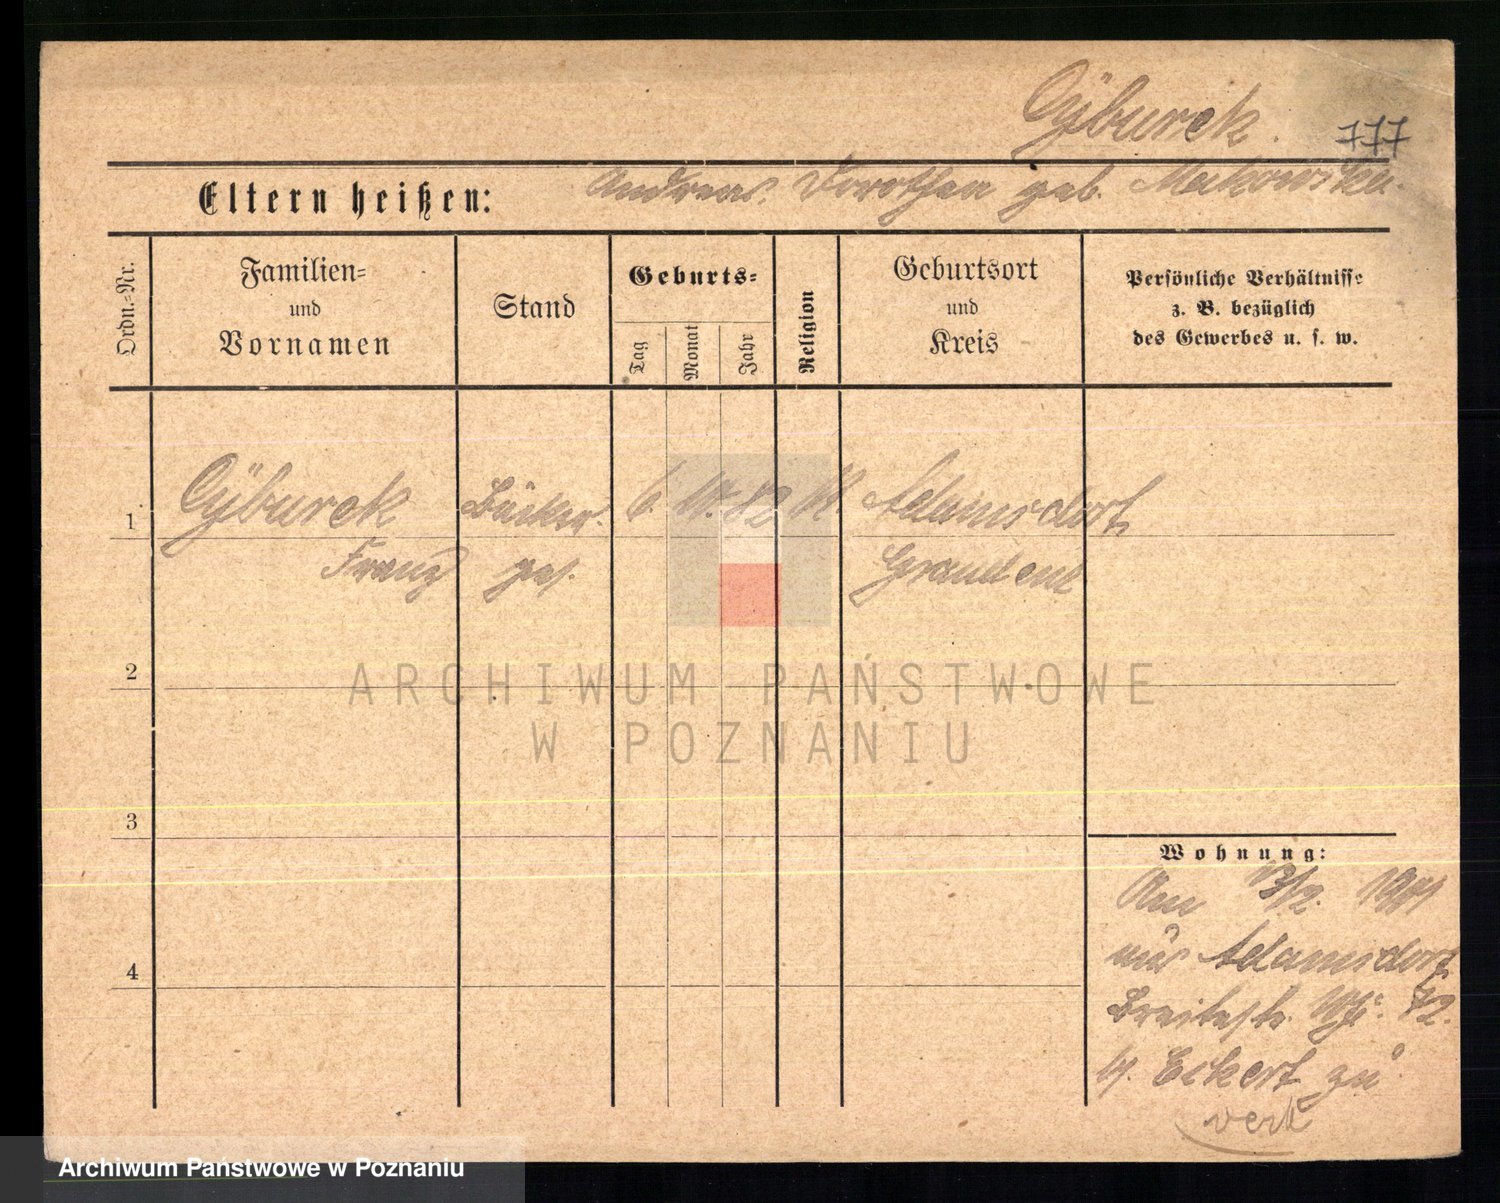 Cÿburek.
777
Eltern heißen: Andreas. Dorothea geb. Makowska.
Ordn.-Nr.
Familien-
und
Vornamen
Stand
Geburts-
Tag
Monat
Jahr
Religion
Geburtsort
und
Kreis
Persönliche Verhältnisse
z. B. bezüglich
des Gewerbes u. s. w.
1 Cÿburek Bäcker. 6. 82 Adamsdorf
Franz ges. Graudenz
2
ARCHIWUM PAŃSTWOWE
W POZNANIU
3
Wohnung:
Am 13/2.
aus Adamsdorf
4
Breitestr. 12.
b/. Eckert zu
verh
Archiwum Państwowe w Poznaniu